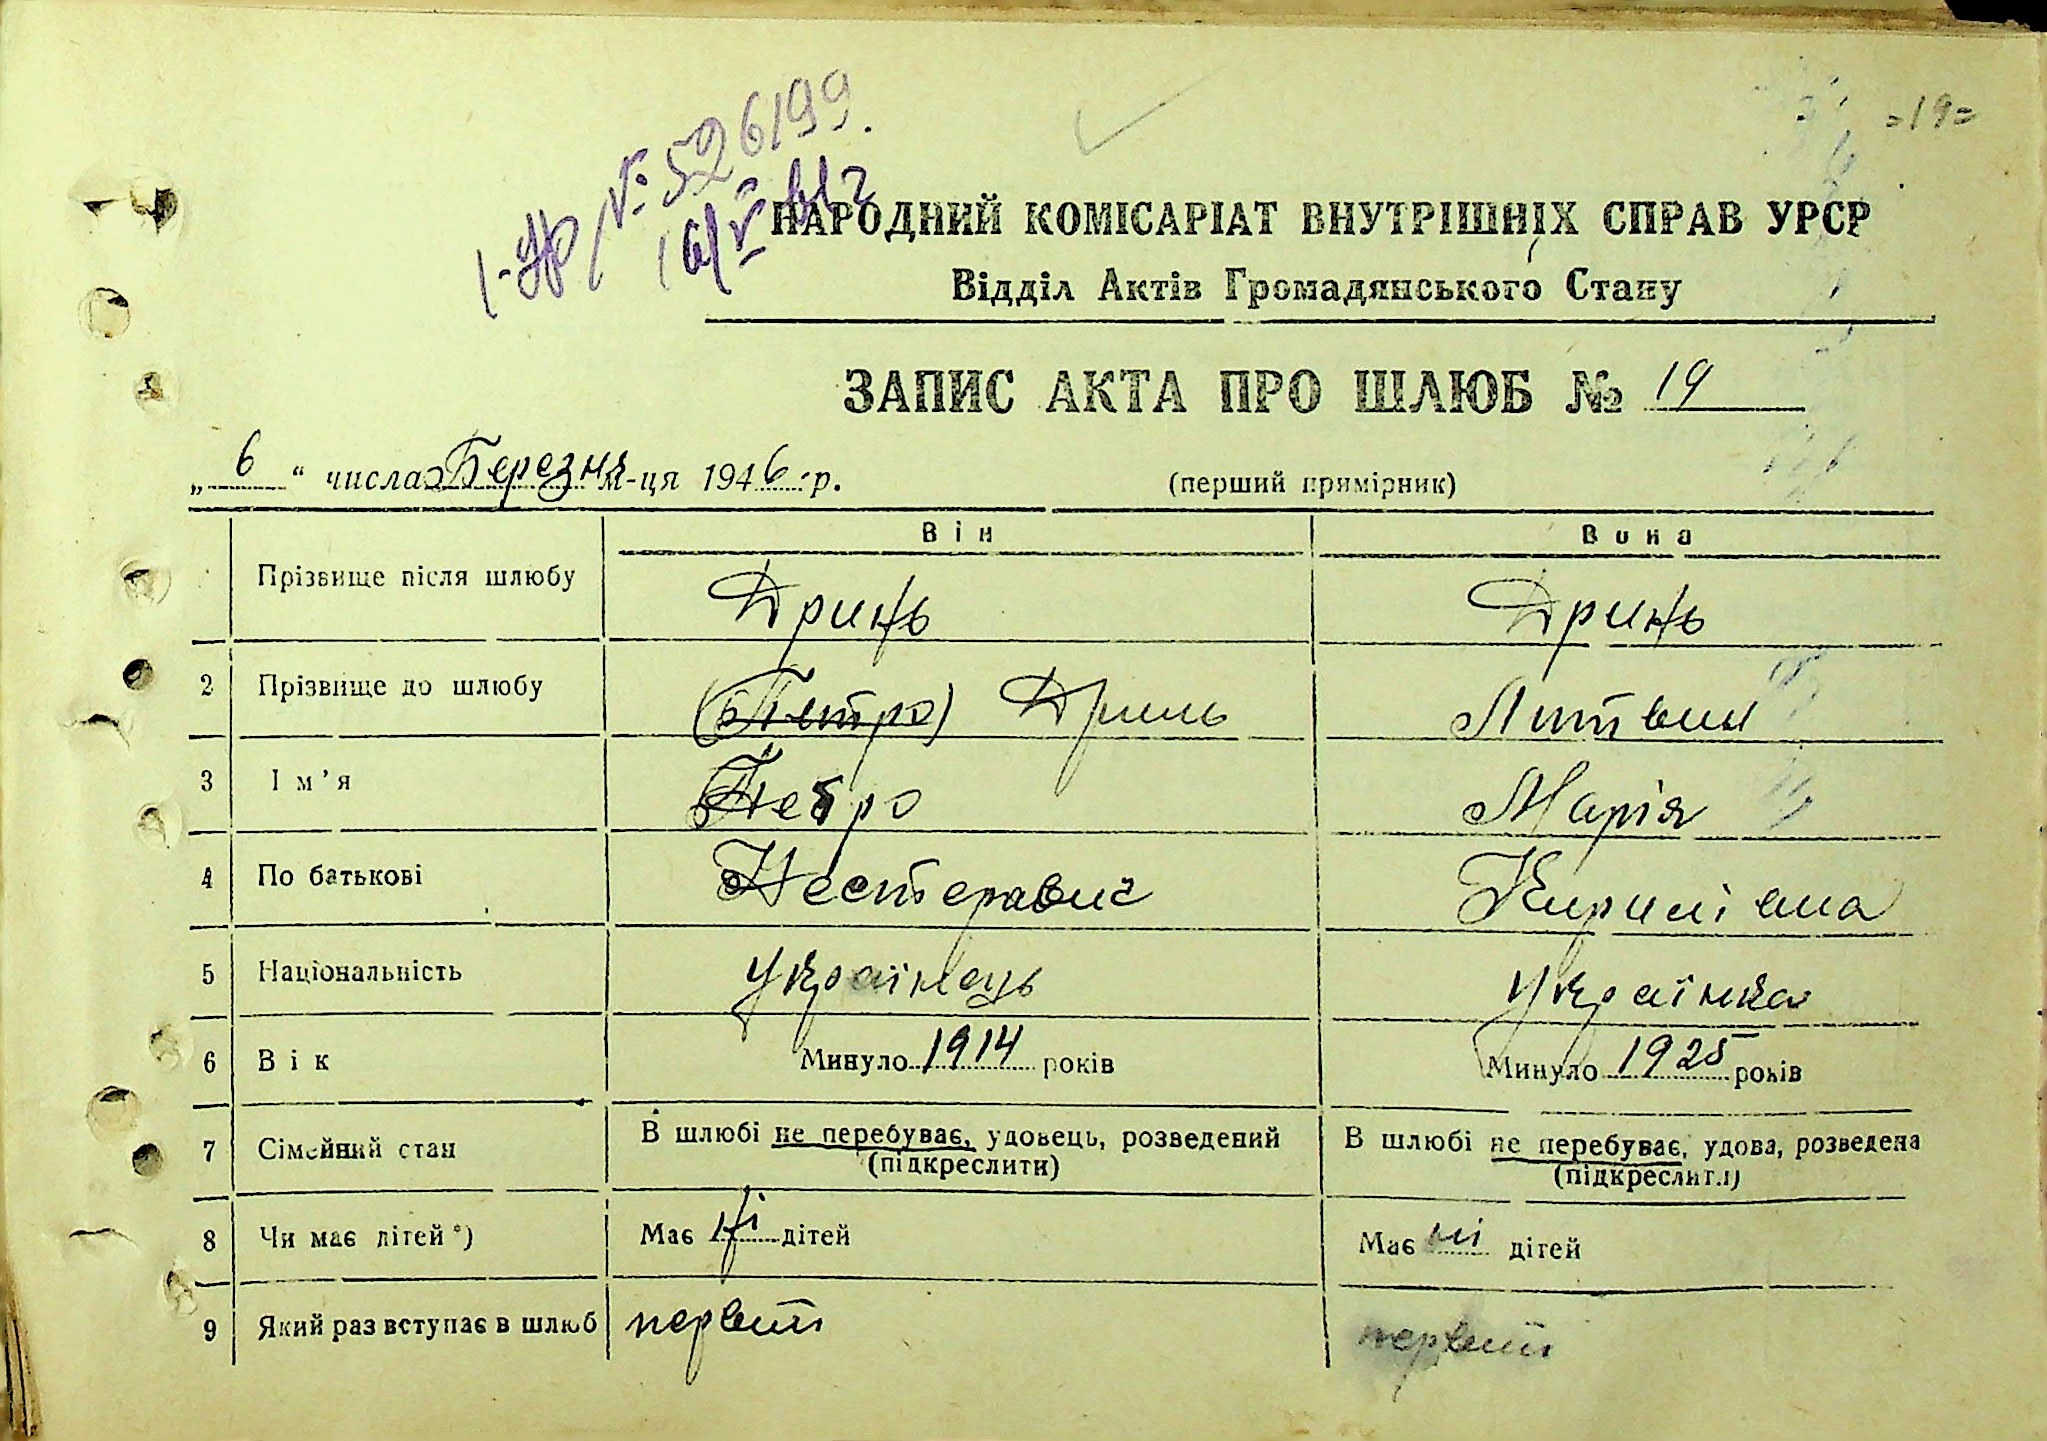 =19=
№ 526199.
НАРОДНИЙ КОМІСАРІАТ ВНУТРІШНІХ СПРАВ УРСР
Відділ Актів Громадянського Стану
ЗАПИС АКТА ПРО ШЛЮБ № 19
„ 6 “ числа Березня м-ця 1946 р. (перший примірник)
Він Вона
Прізвище після шлюбу Дринь Дринь
2 Прізвище до шлюбу (Петро) Дринь Литвин
3 Ім’я Петро Марія
4 По батькові Нестеравич Кирилівна
5 Національність Українець Українка
6 Вік Минуло 1914 років Минуло 1925 років
7 Сімейний стан В шлюбі не перебуває, удовець, розведений В шлюбі не перебуває, удова, розведена
(підкреслити) (підкреслити)
8 Чи має дітей *) Має ні дітей Має ні дітей
9 Який раз вступає в шлюб первий первий